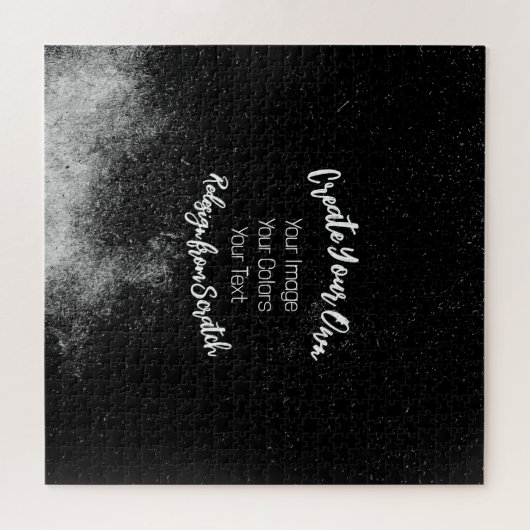 Create Your Own
Your Image
Your Colors
Your Text
Redesign from Scratch